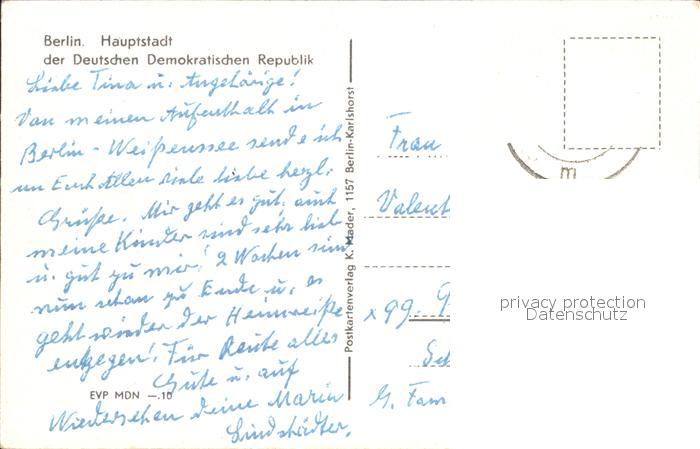 Berlin. Hauptstadt
der Deutschen Demokratischen Republik
Liebe Tina u. Angehörige!
Von meinen Aufenthalt in
Berlin - Weißensee sende ich
an Euch Allen viele liebe herzl.
Grüße. Mir geht es gut, auch
meine Kinder sind sehr lieb
u. gut zu mir! 2 Wochen sind
nun schon zu Ende u. es
geht wieder der Heimreise
entgegen! Für Heute alles
Gute u. auf
Wiedersehen deine Maria
Lindstädter.
EVP MDN —.10
Postkartenverlag K. Mader, 1157 Berlin-Karlshorst
m
Frau
Valent
x 99
G. Fam
privacy protection
Datenschutz